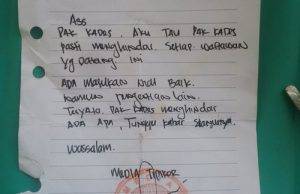 Ass
PAK KADES, AKU TAU PAK KADES
pasti menghindar. Setiap wartawan
yg Datang ini
ADA masukan kndi Baik.
kamuna pengertian lain.
Teryata, PAK KADES menghindar
ADA APA, Tunggu kabar selanjutnya.
wassalam.
MEDIA TIPIKOR